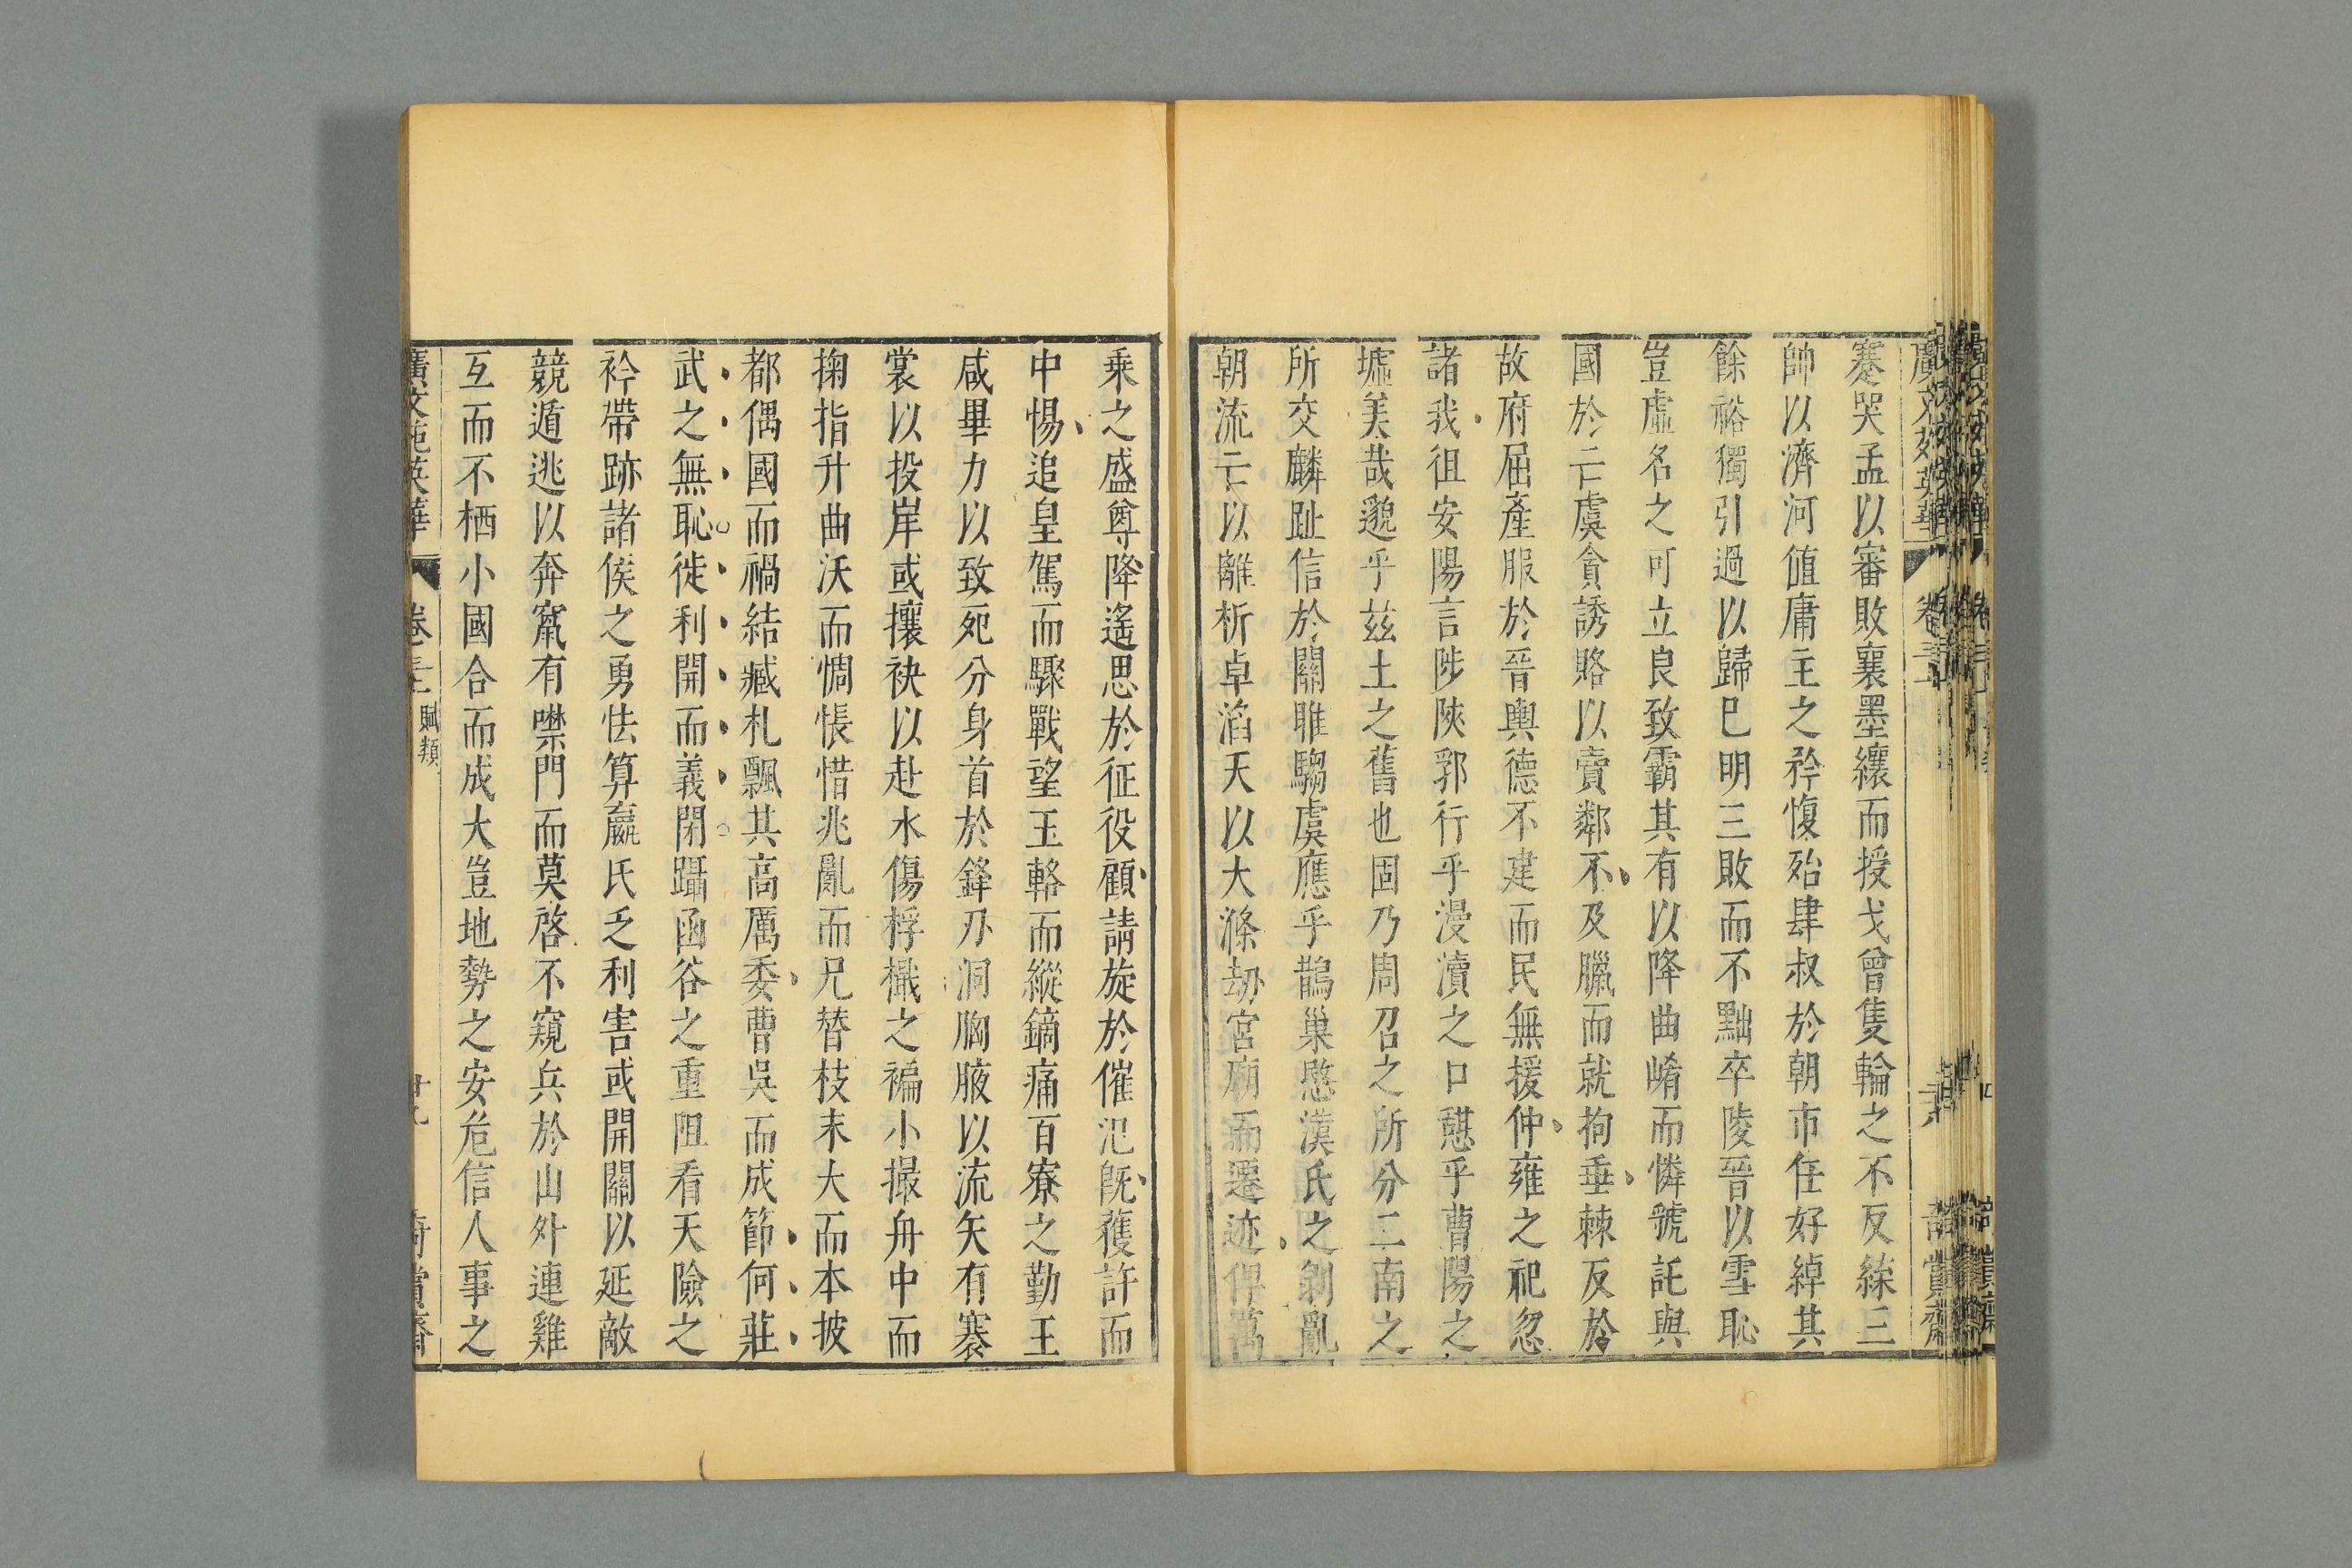 蹇哭孟以審敗襄墨縗而授戈曾隻輪之不反緤三
帥以濟河値庸主之矜愎殆肆叔於朝市任好綽其
餘裕獨引過以歸巳明三敗而不黜卒陵晉以雪恥
豈虛名之可立良致霸其有以降曲崤而憐虢託與
國於亡虞貪誘賂以賣鄰不及臘而就拘垂棘反於
故府屈產服於晉輿德不建而民無援仲雍之祀忽
諸我徂安陽言陟陝郛行乎漫瀆之口憩乎曹陽之
墟美哉邈乎兹土之舊也固乃周召之所分二南之
所交麟趾信於關雎騶虞應乎鵲巢愍漢氏之剝亂
朝流亡以離析卓滔天以大滌劫宮廟而遷迹俾萬
乘之盛尊降遙思於征役顧請旋於傕汜旣獲許而
中惕追皇駕而驟戰望玉輅而縱鏑痛百寮之勤王
咸畢力以致死分身首於鋒刃洞胸腋以流矢有褰
裳以投岸或攘袂以赴水傷桴檝之褊小撮舟中而
掬指升曲沃而惆悵惜兆亂而兄替枝末大而本披
都偶國而禍結臧札飄其高厲委曹吳而成節何莊
武之無恥徙利開而義閉躡函谷之重阻看天險之
衿帶跡諸侯之勇怯算嬴氏之利害或開關以延敵
競遁逃以奔竄有噤門而莫啓不窺兵於山外連雞
互而不栖小國合而成大豈地勢之安危信人事之
廣文苑英華 卷 賦類 賞齋